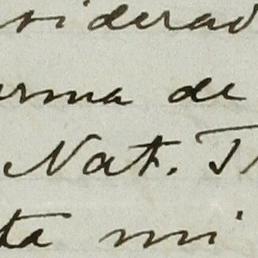 siderad
rma de
Nat. T
ta mi